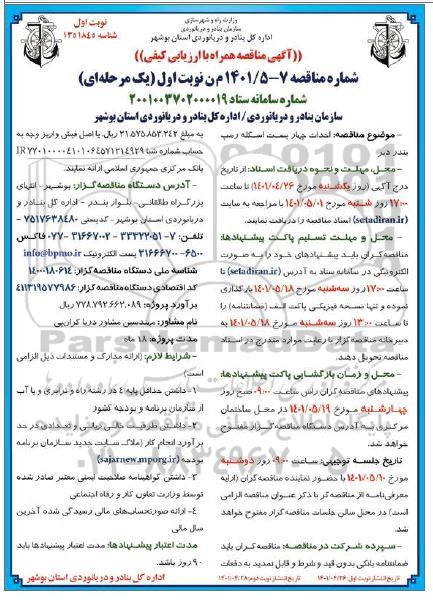 نوبت اول
شناسه ۱۳۵۱۸۴۵
وزارت راه و شهرسازی
سازمان بنادر و دریانوردی
اداره کل بنادر و دریانوردی استان بوشهر
((آگهی مناقصه همراه با ارزیابی کیفی))
شماره مناقصه ۷-۱۴۰۱/۵ م ن نوبت اول (یک مرحله‌ای)
شماره سامانه ستاد ۲۰۰۱۰۰۳۷۰۲۰۰۰۰۱۹
سازمان بنادر و دریانوردی/ اداره کل بنادر و دریانوردی استان بوشهر
- موضوع مناقصه: احداث چهار پست اسکله رمپ
بندر دیر
- محل، مهلت و نحوه دریافت اسناد: از تاریخ
درج آگهی (روز یکشنبه مورخ ۱۴۰۱/۰۴/۲۶) تا ساعت
۱۷:۰۰ روز شنبه مورخ ۱۴۰۱/۰۵/۰۱ با مراجعه به سایت
(setadiran.ir) اسناد مناقصه را دریافت نمایند.
- محل و مهلت تسلیم پاکت پیشنهادها:
مناقصه‌گران باید پیشنهادهای خود را به صورت
الکترونیکی در سامانه ستاد به آدرس (setadiran.ir) تا
ساعت ۱۷:۰۰ روز سه‌شنبه مورخ ۱۴۰۱/۰۵/۱۸ بارگذاری
نموده و تنها نسخه فیزیکی پاکت الف (ضمانتنامه) را
تا ساعت ۱۳:۰۰ روز سه‌شنبه مورخ ۱۴۰۱/۰۵/۱۸ به
دبیرخانه مناقصه گزار با رعایت موارد مندرج در اسناد
مناقصه تحویل دهند.
- محل و زمان بازگشایی پاکت پیشنهادها:
پیشنهادهای مناقصه گران راس ساعت ۰۹:۰۰ صبح روز
چهارشنبه مورخ ۱۴۰۱/۰۵/۱۹ در محل ساختمان
مرکزی به آدرس دستگاه مناقصه گزار مفتوح
خواهد شد.
تاریخ جلسه توجیهی: ساعت ۰۹:۰۰ روز دوشنبه
مورخ ۱۴۰۱/۰۵/۱۰ با حضور نماینده مناقصه گران (ارایه
معرفی‌نامه از مناقصه گر با ذکر عنوان مناقصه الزامی
است) در محل سالن جلسات مناقصه گزار مفتوح خواهد
شد.
- سپرده شرکت در مناقصه: مناقصه گران باید
ضمانتنامه بانکی بدون قید و شرط و قابل تمدید به دفعات
به مبلغ ۳۱.۵۷۵.۸۵۳.۲۴۲ ریال، یا اصل فیش واریز وجه به
حساب شماره شبا
بانک مرکزی جمهوری اسلامی ارائه نمایند.
- آدرس دستگاه مناقصه گزار: بوشهر - انتهای
بزرگراه طالقانی - بلوار بندر - اداره کل بنادر و
دریانوردی استان بوشهر - کدپستی ۷۵۱۷۶۳۸۴۸۰ -
تلفن: ۷-۳۳۳۲۲۵۱ و ۳۱۶۶۷۰۰۲-۰۷۷ فاکس
۳۱۶۶۷۰۰۰-۶۵۰۰ پست الکترونیک info@bpmo.ir
شناسه ملی دستگاه مناقصه گزار: ۱۴۰۰۰۱۸۰۶۱۴
کد اقتصادی دستگاه مناقصه گزار: ۴۱۱۳۱۹۵۷۷۹۸۶
برآورد پروژه: ۷۲۸.۷۹۲.۶۶۲.۰۸۹ ریال
نام مشاور: مهندسین مشاور دریا کران‌پی
مدت پروژه: ۱۸ ماه
- شرایط لازم: (ارائه مدارک و مستندات ذیل الزامی
است)
۱- داشتن حداقل پایه ۴ در رشته راه و ترابری و یا آب
از سازمان برنامه و بودجه کشور
۲- داشتن ظرفیت خالی ریالی و تعدادی در حد
برآورد انجام کار (ملاک سایت جدید سازمان برنامه
بودجه (sajarnew.mporg.ir)
۳- داشتن گواهینامه صلاحیت ایمنی معتبر صادر شده
توسط وزارت تعاون کار و رفاه اجتماعی
۴- ارائه صورتحساب‌های مالی رسیدگی شده آخرین
سال مالی
مدت اعتبار پیشنهادها: مدت اعتبار پیشنهادها باید
۹۰ روز باشد.
تاریخ انتشار نوبت اول: ۱۴۰۱/۰۴/۲۶
تاریخ انتشار نوبت دوم: ۱۴۰۱/۰۴/۲۸
اداره کل بنادر و دریانوردی استان بوشهر